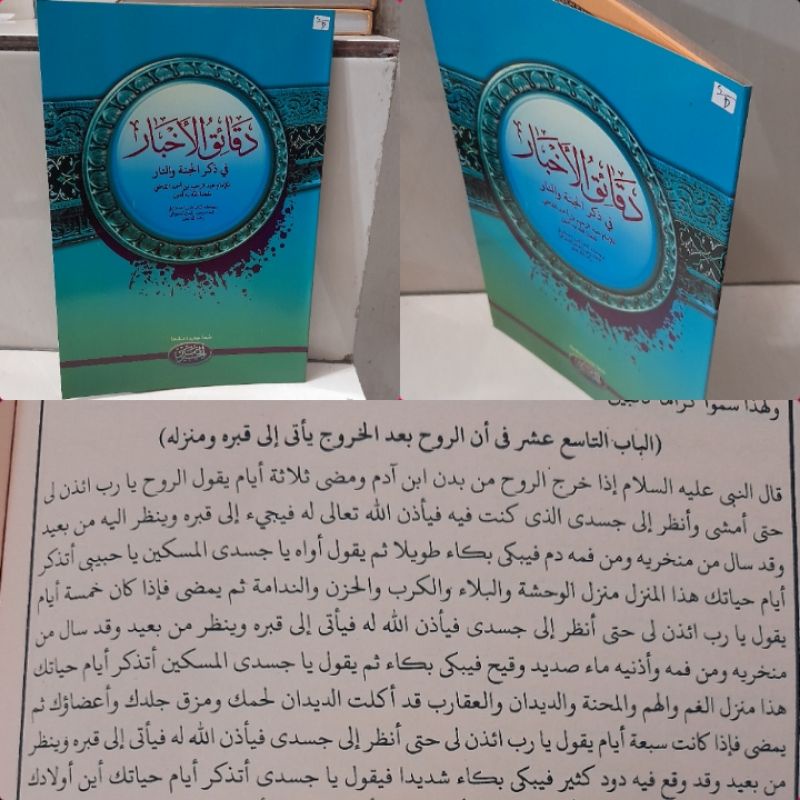 دقائق الأخبار
في ذكر الجنة والنار
للإمام عبد الرحيم بن أحمد القاضي
دقائق الأخبار
في ذكر الجنة والنار
للإمام عبد الرحيم بن أحمد القاضي
ولهذا سموا كراما كاتبين
(الباب التاسع عشر فى أن الروح بعد الخروج يأتى إلى قبره ومنزله)
قال النبى عليه السلام إذا خرج الروح من بدن ابن آدم ومضى ثلاثة أيام يقول الروح يا رب ائذن لى
حتى أمشى وأنظر إلى جسدى الذى كنت فيه فيأذن الله تعالى له فيجيء إلى قبره وينظر اليه من بعيد
وقد سال من منخريه ومن فمه دم فيبكى بكاء طويلا ثم يقول أواه يا جسدى المسكين يا حبيبى أتذكر
أيام حياتك هذا المنزل منزل الوحشة والبلاء والكرب والحزن والندامة ثم يمضى فإذا كان خمسة أيام
يقول يا رب ائذن لى حتى أنظر إلى جسدى فيأذن الله له فيأتى إلى قبره وينظر من بعيد وقد سال من
منخريه ومن فمه وأذنيه ماء صديد وقيح فيبكى بكاء ثم يقول يا جسدى المسكين أتذكر أيام حياتك
هذا منزل الغم والهم والمحنة والديدان والعقارب قد أكلت الديدان لحمك ومزق جلدك وأعضاؤك ثم
يمضى فإذا كانت سبعة أيام يقول يا رب ائذن لى حتى أنظر إلى جسدى فيأذن الله له فيأتى إلى قبره وينظر
من بعيد وقد وقع فيه دود كثير فيبكى بكاء شديدا فيقول يا جسدى أتذكر أيام حياتك أين أولادك